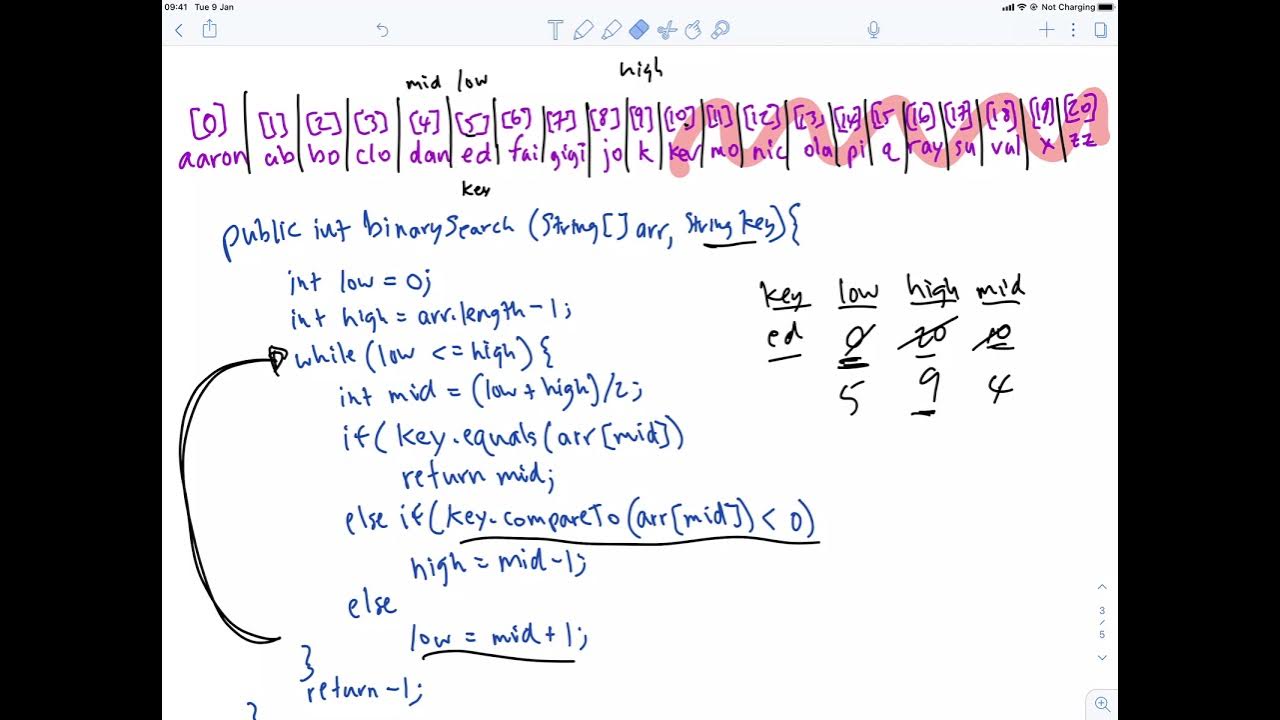 09:41 Tue 9 Jan
Not Charging
mid low high
[0] [1] [2] [3] [4] [5] [6] [7] [8] [9] [10] [11] [12] [13] [14] [15 [16] [17] [18] [19] [20]
aaron ab bo clo dan ed fai gigi jo k kev mo nic ola pi q ray su val x zz
key
public int binarySearch (String[] arr, String key){
int low = 0;
int high = arr.length-1;
while (low <= high) {
int mid = (low + high)/2;
if( key.equals(arr[mid])
return mid;
else if(key.compareTo(arr[mid]) < 0)
high = mid-1;
else
low = mid+1;
}
return -1;
}
key low high mid
ed 0 20 10
5 9 4
3
/
5